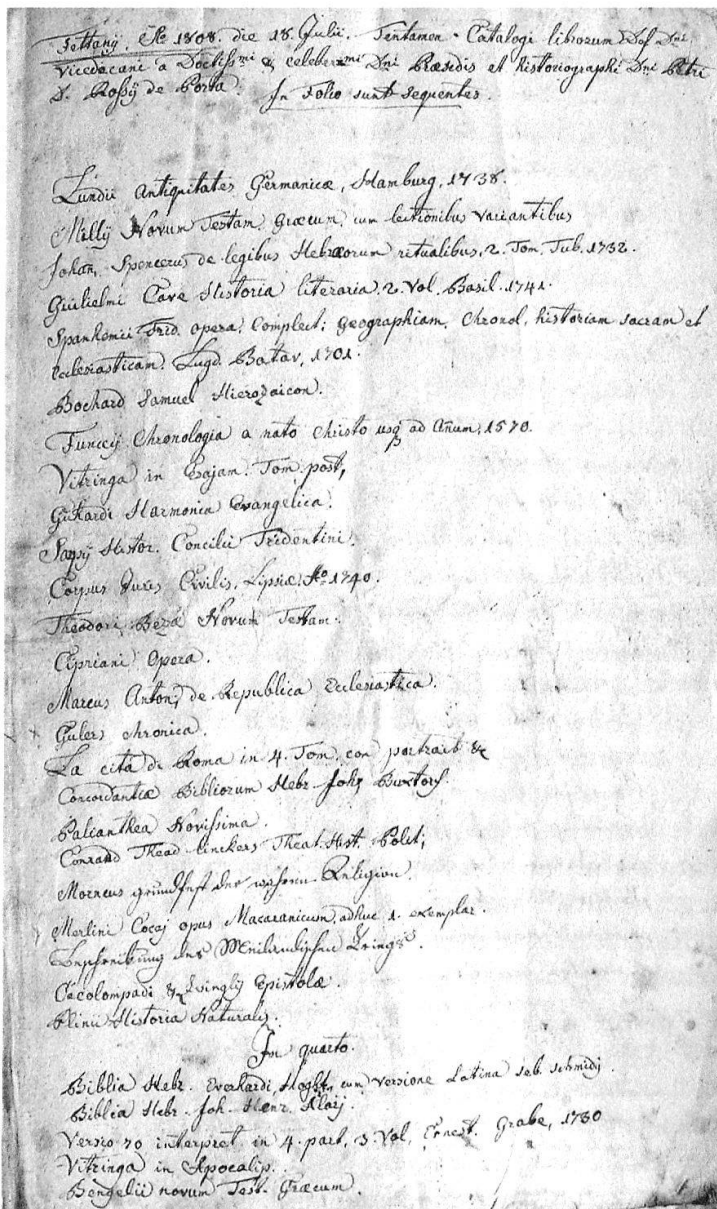 Fettanij. Ao 1808. die 18 Julii. Tentamen Catalogi librorum Dni
Vicedecani a Doctissmi & celeberrmi Dni Præsidis et historiographi Dni Petri
D. Rosij de Porta. In Folio sunt sequentes.
Lundii Antiquitates Germanicæ, Hamburg, 1738.
Millij Novum Testam. Græcum, cum lectionibus variantibus
Johan. Spencerus de legibus Hebræorum ritualibus, 2. Tom. Tub. 1732.
Guilielmi Cave Historia literaria, 2. Vol. Basil. 1741.
Spanhemii Frid. opera, Complect: Geographiam, Chronol, historiam sacram et
ecclesiasticam. Lugd. Batav, 1701.
Bochard Samuel Hierozaicon.
Funccij Chronologia a nato Christo usq ad Añum, 1570.
Vitringa in Esajam. Tom. post,
Harmonia Evangelica.
Sarpij Histor. Concilii Tridentini.
Corpus Juris Civilis, Lipsiæ, Ao 1740.
Theodori Bezá Novum Testam.
Cipriani Opera.
Marcus Anton, de Republica Ecclesiastica.
Gulers chronica.
La cità di Roma in 4. Tom. con portrait &c
Concordantiæ Bibliorum Hebr. Joh, Buxtorf.
Palianthea Novissima.
Conrad Thead. linckers Theat. Hist. Polit;
Morneus grundfest der wahren Religion.
Merlini Cocaj opus Macaranicum, adhuc 1. exemplar.
Beschreibung des Meiländischen Kriegs.
Oecolompadi & Zvinglij Epistolæ.
Plinii Historia Naturalis.
In quarto.
Biblia Hebr. Everhardi, cum versione Latina seb. schmidij.
Biblia Hebr. Joh. Henr. Maij.
Versio 70 interpret. in 4. part, 3. Vol, Ernest. Grabe, 1730
Vitringa in Apocalip.
Bengelii novum Test. Græcum.